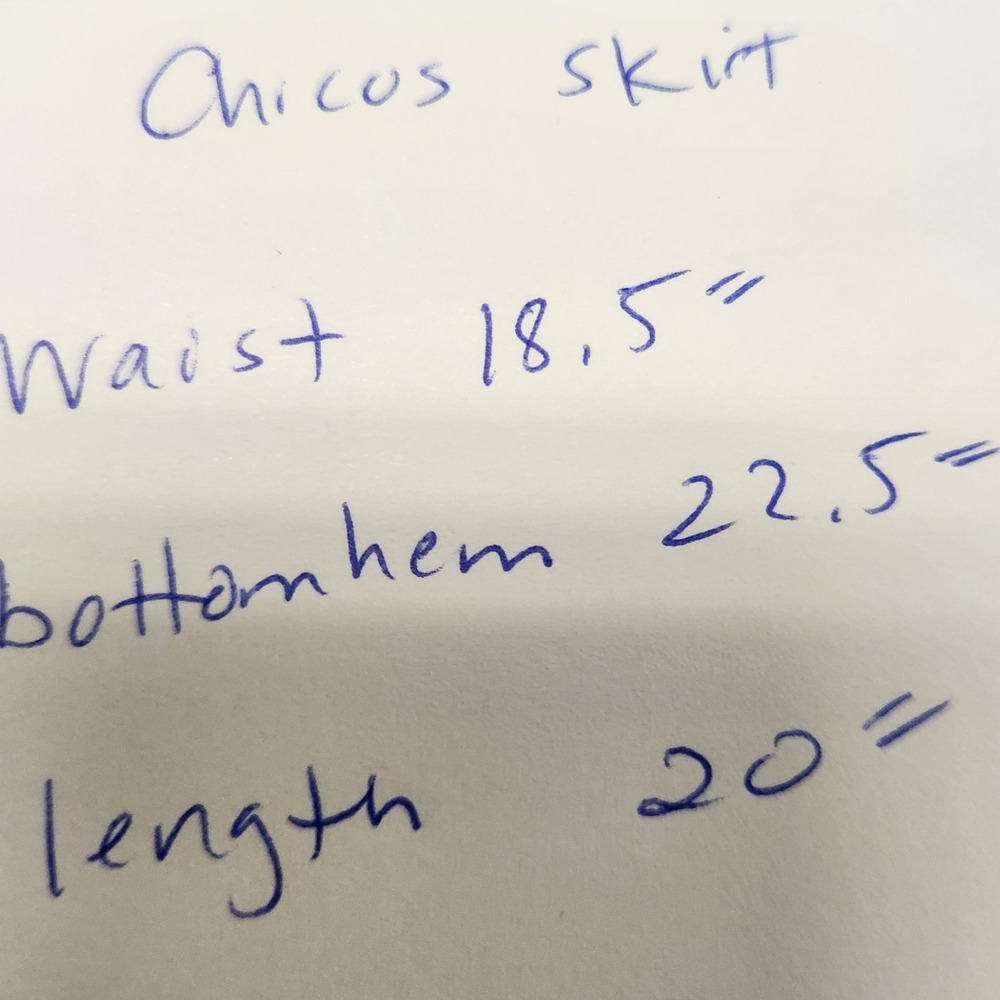 Chicos skirt
Waist 18.5"
bottom hem 22.5"
length 20"